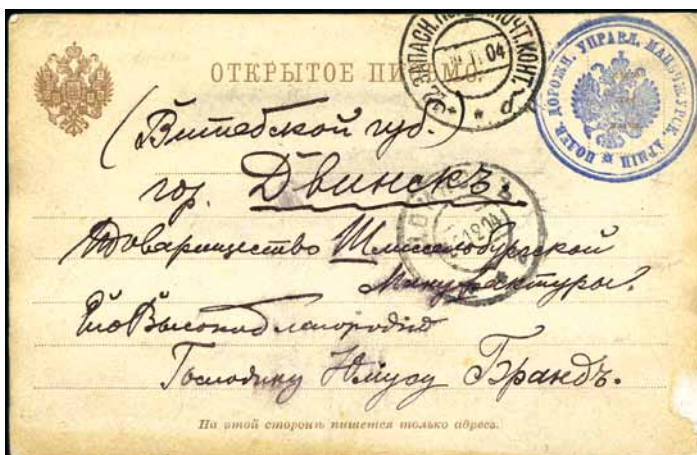 ОТКРЫТОЕ ПИСЬМО.
ЗАПАСН. ПОЧТ. КОНТ.
04
ПОЛЕВ. ДОРОЖН. УПРАВЛ. МАНЬЧЖУРСК. АРМІИ
(Витебской губ.)
гор. Двинскъ.
Товарищество Шлиссельбургской
Мануфактуры.
Его Высокоблагородію
Господину Юлиусу Брандъ.
На этой сторонѣ пишется только адресъ.